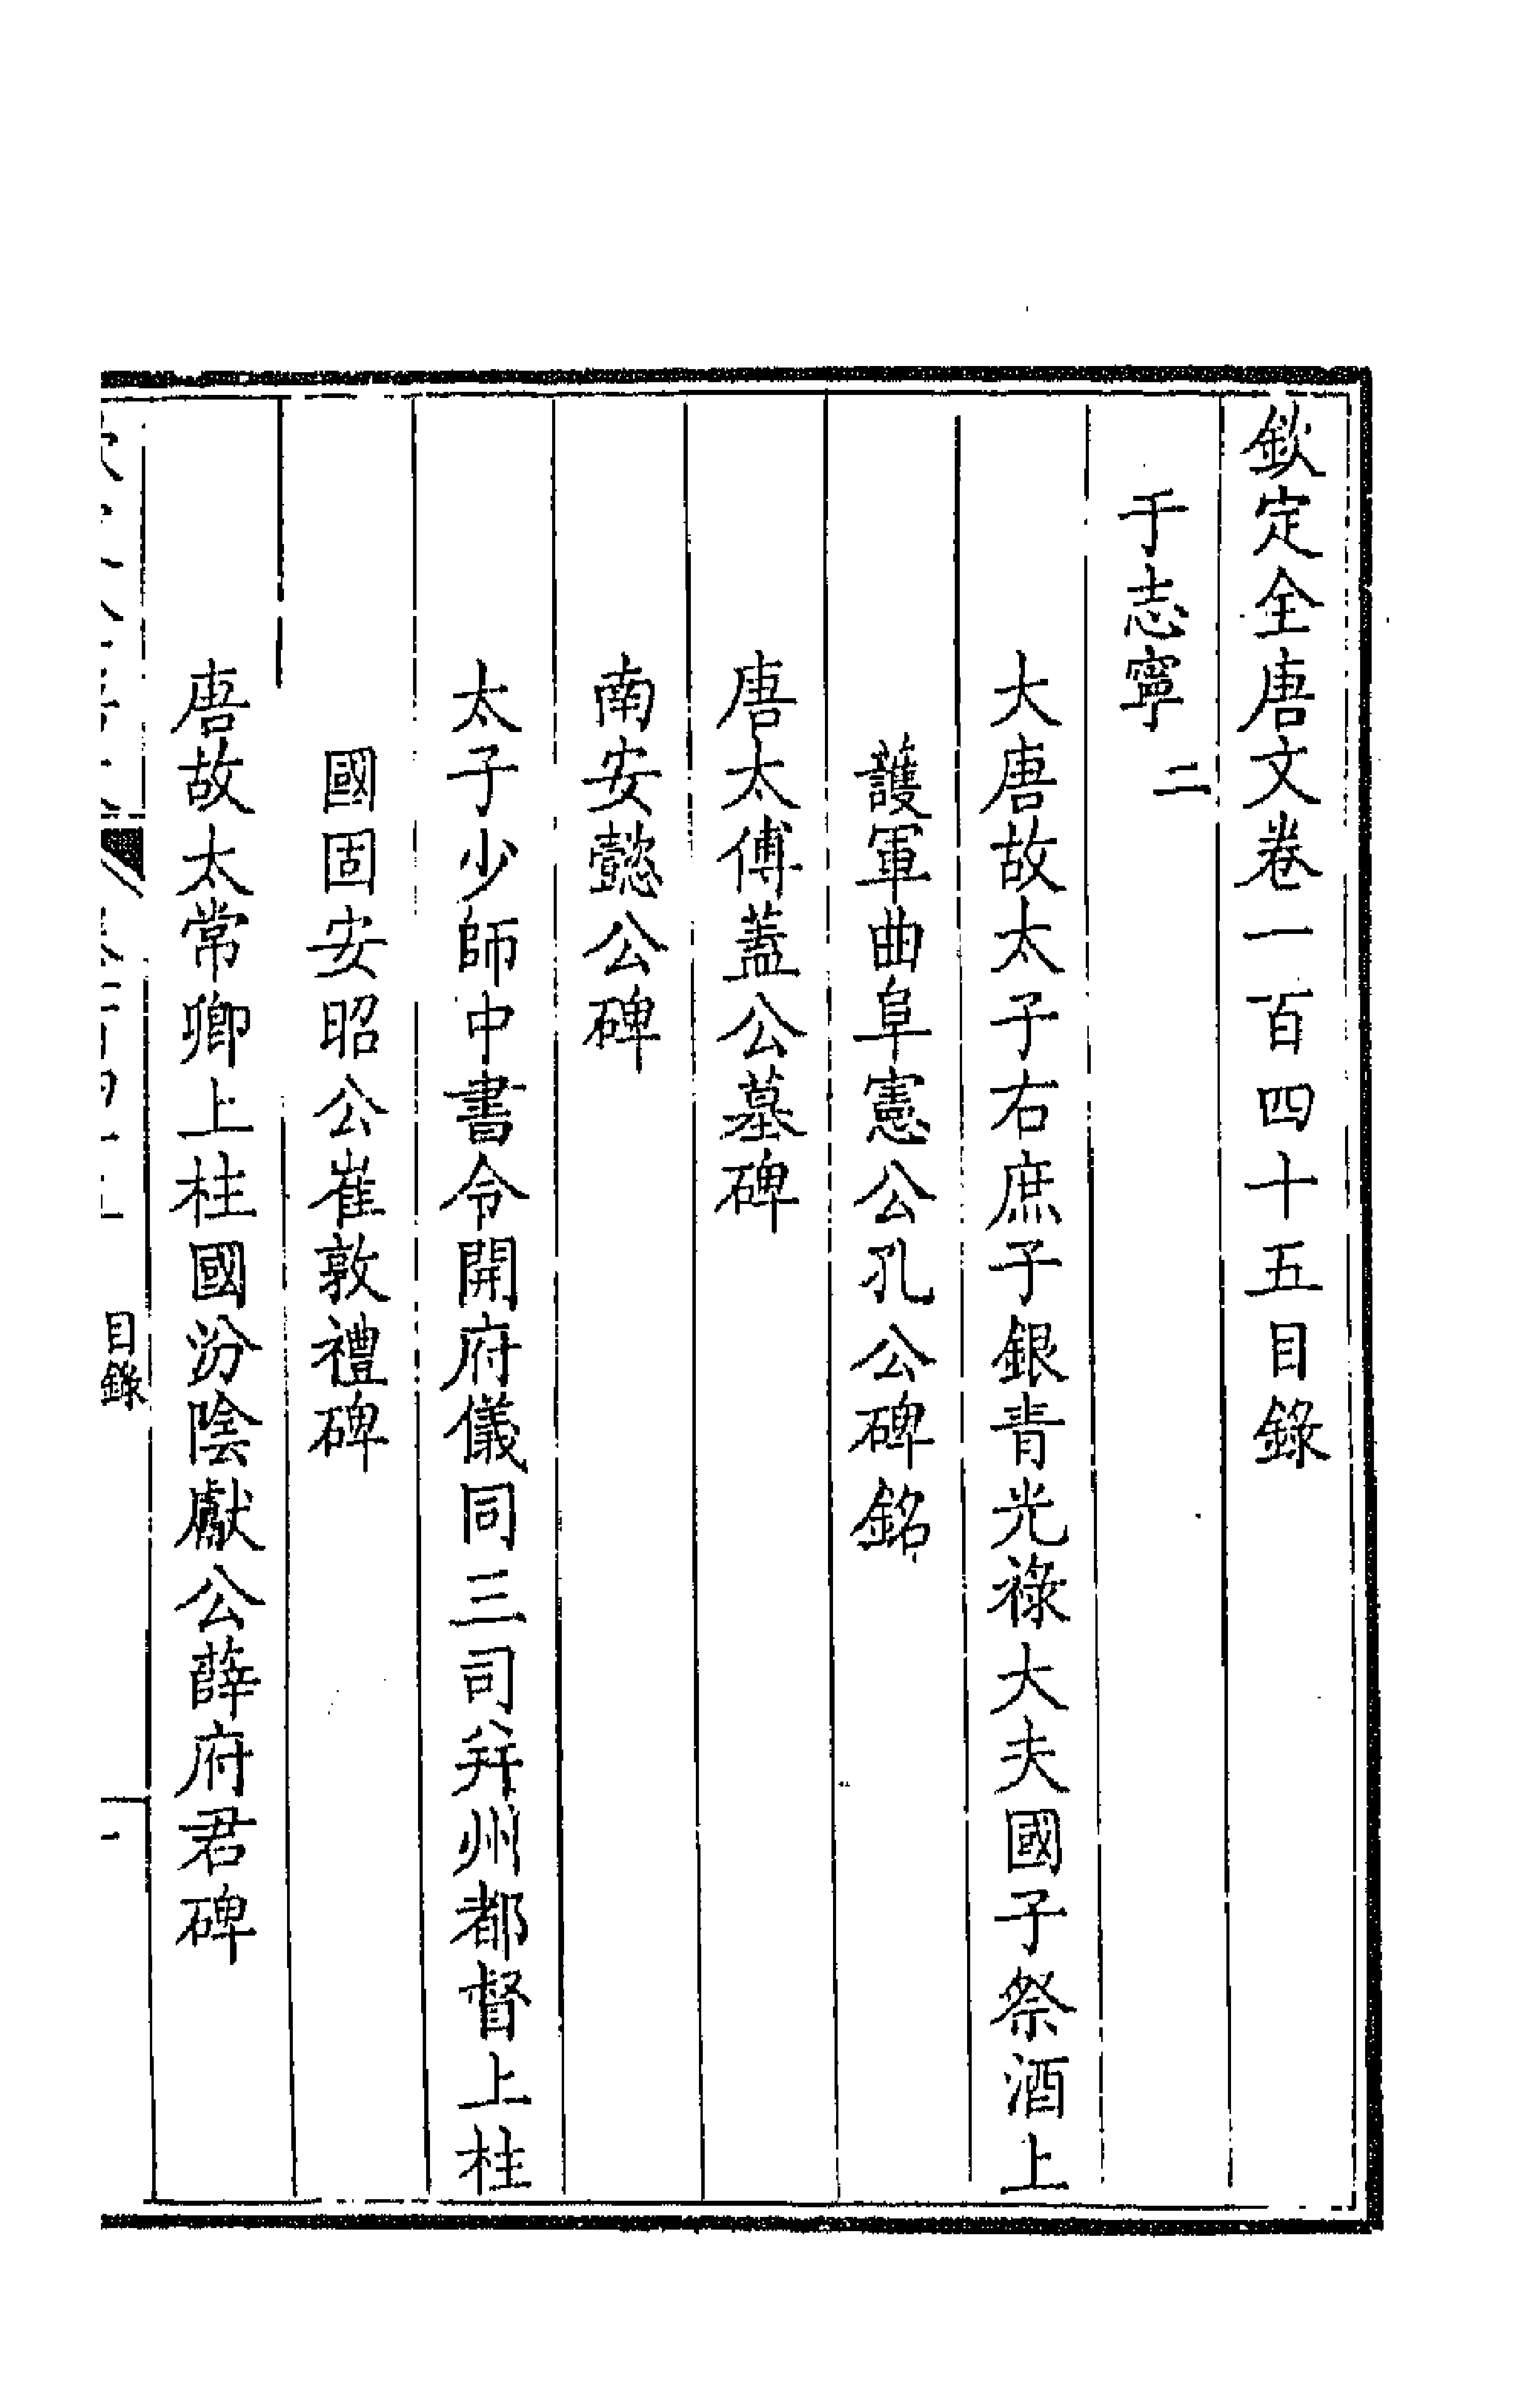 欽定全唐文卷一百四十五目錄
于志寧 二
大唐故太子右庶子銀青光祿大夫國子祭酒上
護軍曲阜憲公孔公碑銘
唐太傅蓋公墓碑
南安懿公碑
太子少師中書令開府儀同三司幷州都督上柱
國固安昭公崔敦禮碑
唐故太常卿上柱國汾陰獻公薛府君碑
目錄